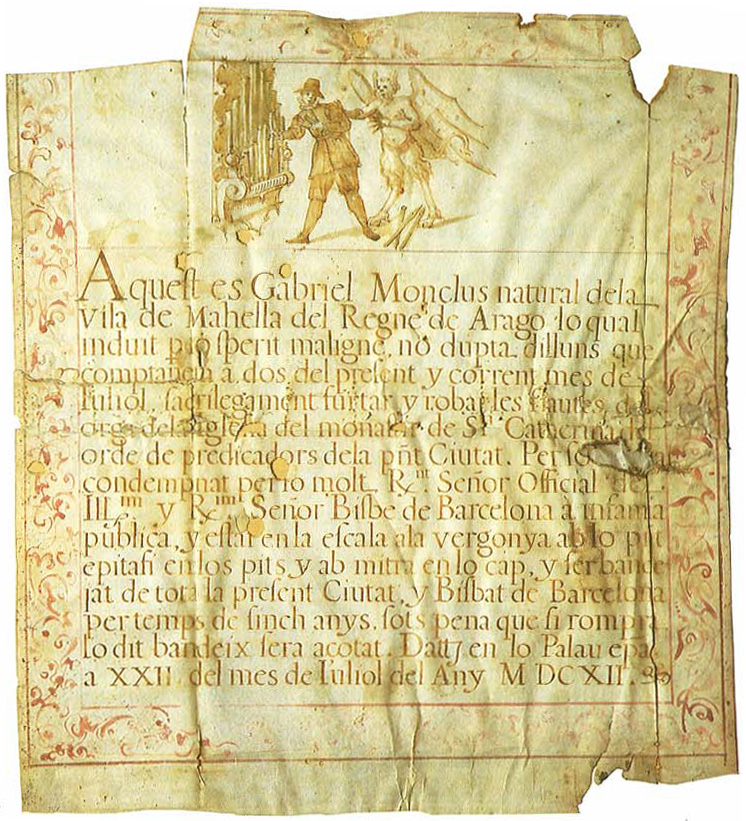 Aquest es Gabriel Monclus natural dela
Vila de Mahella del Regne de Arago lo qual
induit p sperit maligne, no dupta dilluns que
comptauem a dos del present y corrent mes de
Iuliol, sacrilegament furtar y robar les flautes, del
orga dela iglesia del monastir de St Catherina, del
orde de predicadors dela pñt Ciutat. Per
condempnat per lo molt Rnt Señor Official del
Illm y Rm Señor Bisbe de Barcelona à infamia
publica, y estar en la escala ala vergonya ab lo pñt
epitafi en los pits, y ab mitra en lo cap, y ser bande
jat de tota la present Ciutat, y Bisbat de Barcelona
per temps de sinch anys, sots pena que si rompra
lo dit bandeix sera açotat. Datt en lo Palau epal
a XXII del mes de Iuliol del Any M DCXII.